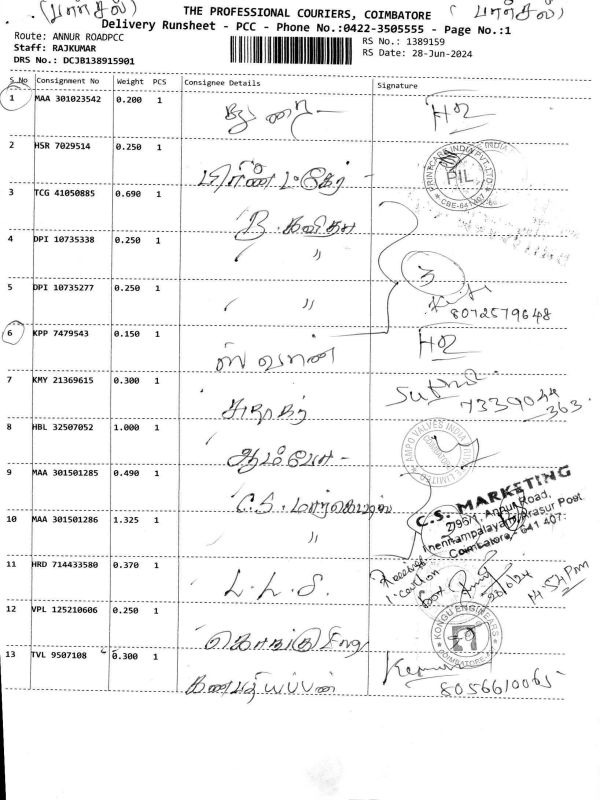 (பார்சல்) THE PROFESSIONAL COURIERS, COIMBATORE (பார்சல்)
Delivery Runsheet - PCC - Phone No.:0422-3505555 - Page No.:1
Route: ANNUR ROADPCC RS No.: 1389159
Staff: RAJKUMAR RS Date: 28-Jun-2024
DRS No.: DCJB138915901
S No Consignment No Weight PCS Consignee Details Signature
1 MAA 301023542 0.200 1
2 HSR 7029514 0.250 1 PRINTCARE INDIA PVT.LTD. PIL
3 TCG 41050885 0.690 1 B. கவிதா
4 DPI 10735338 0.250 1 " " 3
5 DPI 10735277 0.250 1 " " 8072579648
6 KPP 7479543 0.150 1
7 KMY 21369615 0.300 1 7339044
363
8 HBL 32507052 1.000 1 AMPO VALVES INDIA PRIVATE LIMITED
9 MAA 301501285 0.490 1 C.S. மார்கெட்டிங் C.S. MARKETING
10 MAA 301501286 1.325 1 " 2/95/1, Annur Road,
Arasur Post
Coimbatore - 641 407.
11 HRD 714433580 0.370 1 L.L.S. Received
28/6/24 14.54 Pm
12 VPL 125210606 0.250 1 கொங்கு Eng KONGU ENGINEERS COIMBATORE
13 TVL 9507108 0.300 1 கணபதியப்பன் 8056610065